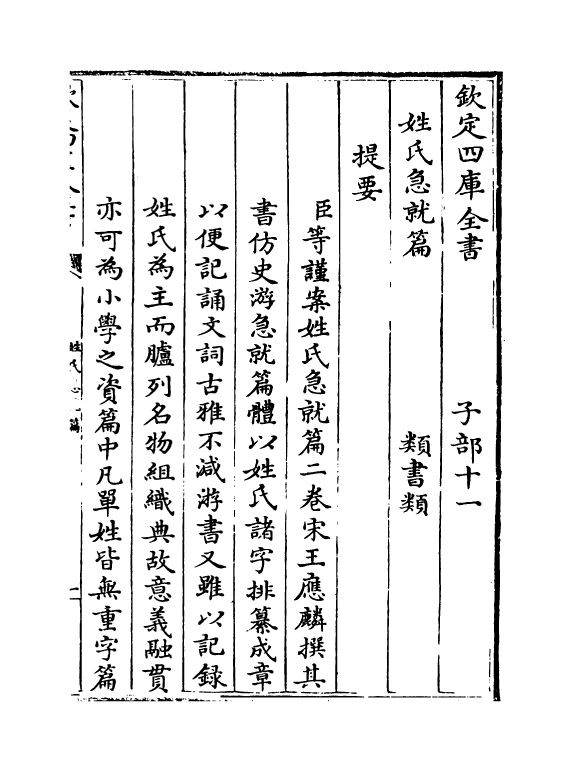 欽定四庫全書　　子部十一
姓氏急就篇　　類書類
提要
臣等謹案姓氏急就篇二卷宋王應麟撰其
書仿史游急就篇體以姓氏諸字排纂成章
以便記誦文詞古雅不減游書又雖以記録
姓氏為主而臚列名物組織典故意義融貫
亦可為小學之資篇中凡單姓皆無重字篇